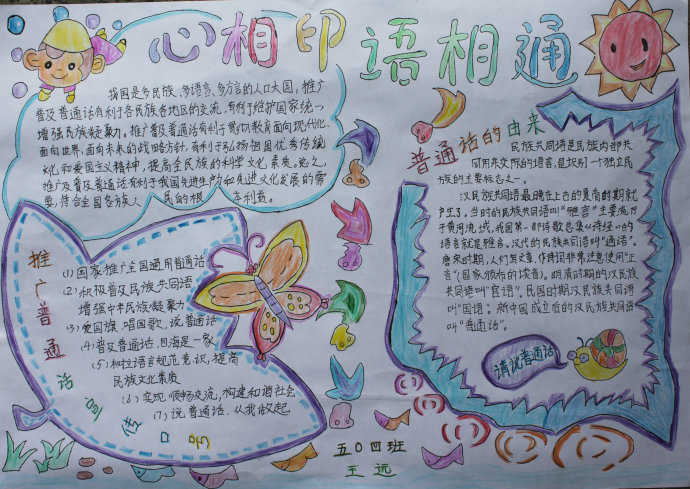 心相印 语相通
我国是多民族、多语言、多方言的人口大国,推广
普及普通话有利于各民族各地区的交流,有利于维护国家统一
增强民族凝聚力。推广普及普通话有利于贯彻教育面向现代化
面向世界,面向未来的战略方针,有利于弘扬祖国优秀传统
文化和爱国主义精神,提高全民族的科学文化素质。总之,
推广及普及普通话有利于我国先进生产力和先进文化发展的需
要,符合全国各族人民的根本利益。
推广普通话宣传口号
(1)国家推广全国通用普通话
(2)积极普及民族共同语
增强中华民族凝聚力
(3)爱国旗,唱国歌,说普通话
(4)普及普通话,四海是一家
(5)和拉语言规范意识,提高
民族文化素质
(6)实现顺畅交流,构建和谐社会
(7)说普通话,从我做起
普通话的由来
民族共同语是民族内部共
同用来交际的语言,是识别一个独立民
族的主要标志之一。
汉民族共同语最晚在上古的夏商时期就
产生了,当时的民族共同语叫“雅言”主要流行
于黄河流域,我国第一部诗歌总集《诗经》的
语言就是雅言。汉代的民族共同语叫“通语”。
唐宋时期,人们写文章、作诗词非常注意使用“正
音”(国家颁布的读音)。明清时期的汉民族
共同语叫“官话”,民国时期汉民族共同语
叫“国语”。新中国成立后的汉民族共同语
叫“普通话”。
请说普通话
五〇四班
王远